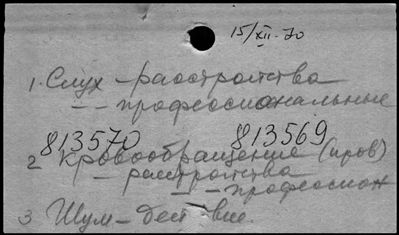 15/XII-70
1. Слух – расстройства
– – профессиональные
813570 813569
2 Кровообращение (пров)
– расстройства
– – професион
3 Шум – дест вие.